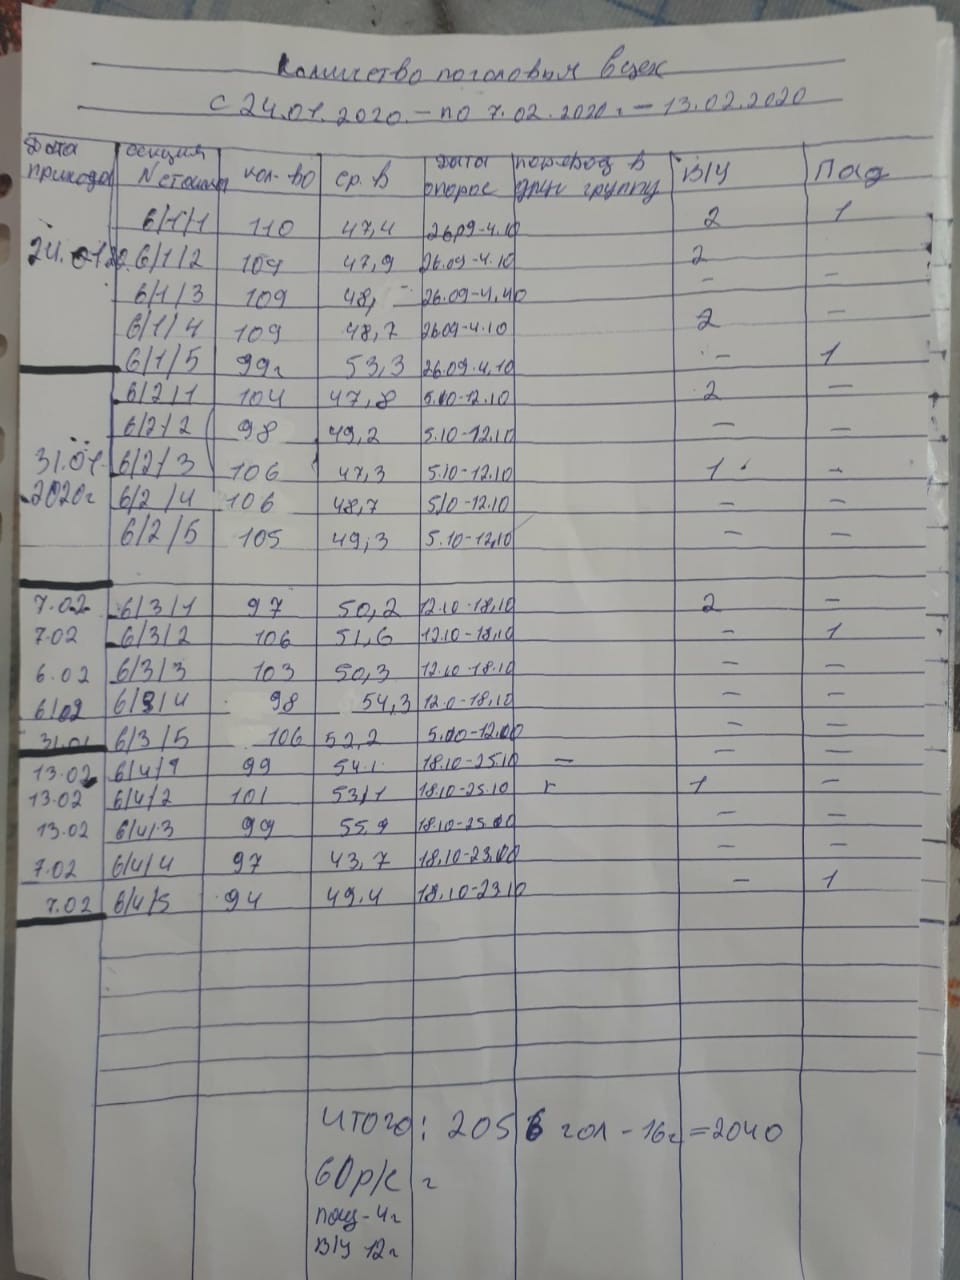 Количество поголовья в цех
с 24.01.2020. - по 7.02.2020г. - 13.02.2020
Дата прихода секция № станка кол-во ср. в Дата опорос перевод в други группу В/У Пад
24.01.20.
6/1/1 110 47,4 26.09-4.10 2 1
6/1/2 109 47,9 26.09-4.10 2
6/1/3 109 48, - 26.09-4.40 - -
6/1/4 109 48,7 26.09-4.10 2 -
6/1/5 99г 53,3 26.09-4.10 - 1
6/2/1 104 47,8 5.10-12.10 2 -
6/2/2 98 49,2 5.10-12.10 - -
31.01. 6/2/3 106 47,3 5.10-12.10 1 -
2020г 6/2/4 106 48,7 5.10-12.10 - -
6/2/5 105 49,3 5.10-12.10 - -
7.02 6/3/1 97 50,2 12.10-18.10 2 -
7.02 6/3/2 106 51,6 12.10-18.10 - 1
6.02 6/3/3 103 50,3 12.10-18.10 - -
6/02 6/3/4 98 54,3 12.0-18.10 - -
31.01 6/3/5 106 52,2 5.00-12.00 - -
13.02 6/4/1 99 54.1 18.10-25.10 - - -
13.02 6/4/2 101 53,1 18.10-25.10 г 1 -
13.02 6/4/3 99 55,9 18.10-25.00 - -
7.02 6/4/4 97 43,7 18.10-23.00 - -
7.02 6/4/5 94 49.4 18.10-23.10 - 1
итого: 2056 гол - 16г = 2040
60р/с г
пад - 4г
В/У 12г